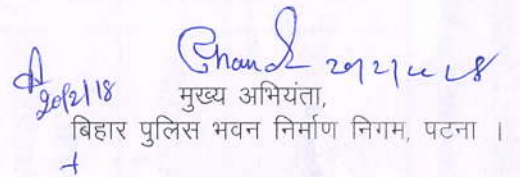 20/2/18
मुख्य अभियंता,
बिहार पुलिस भवन निर्माण निगम, पटना ।